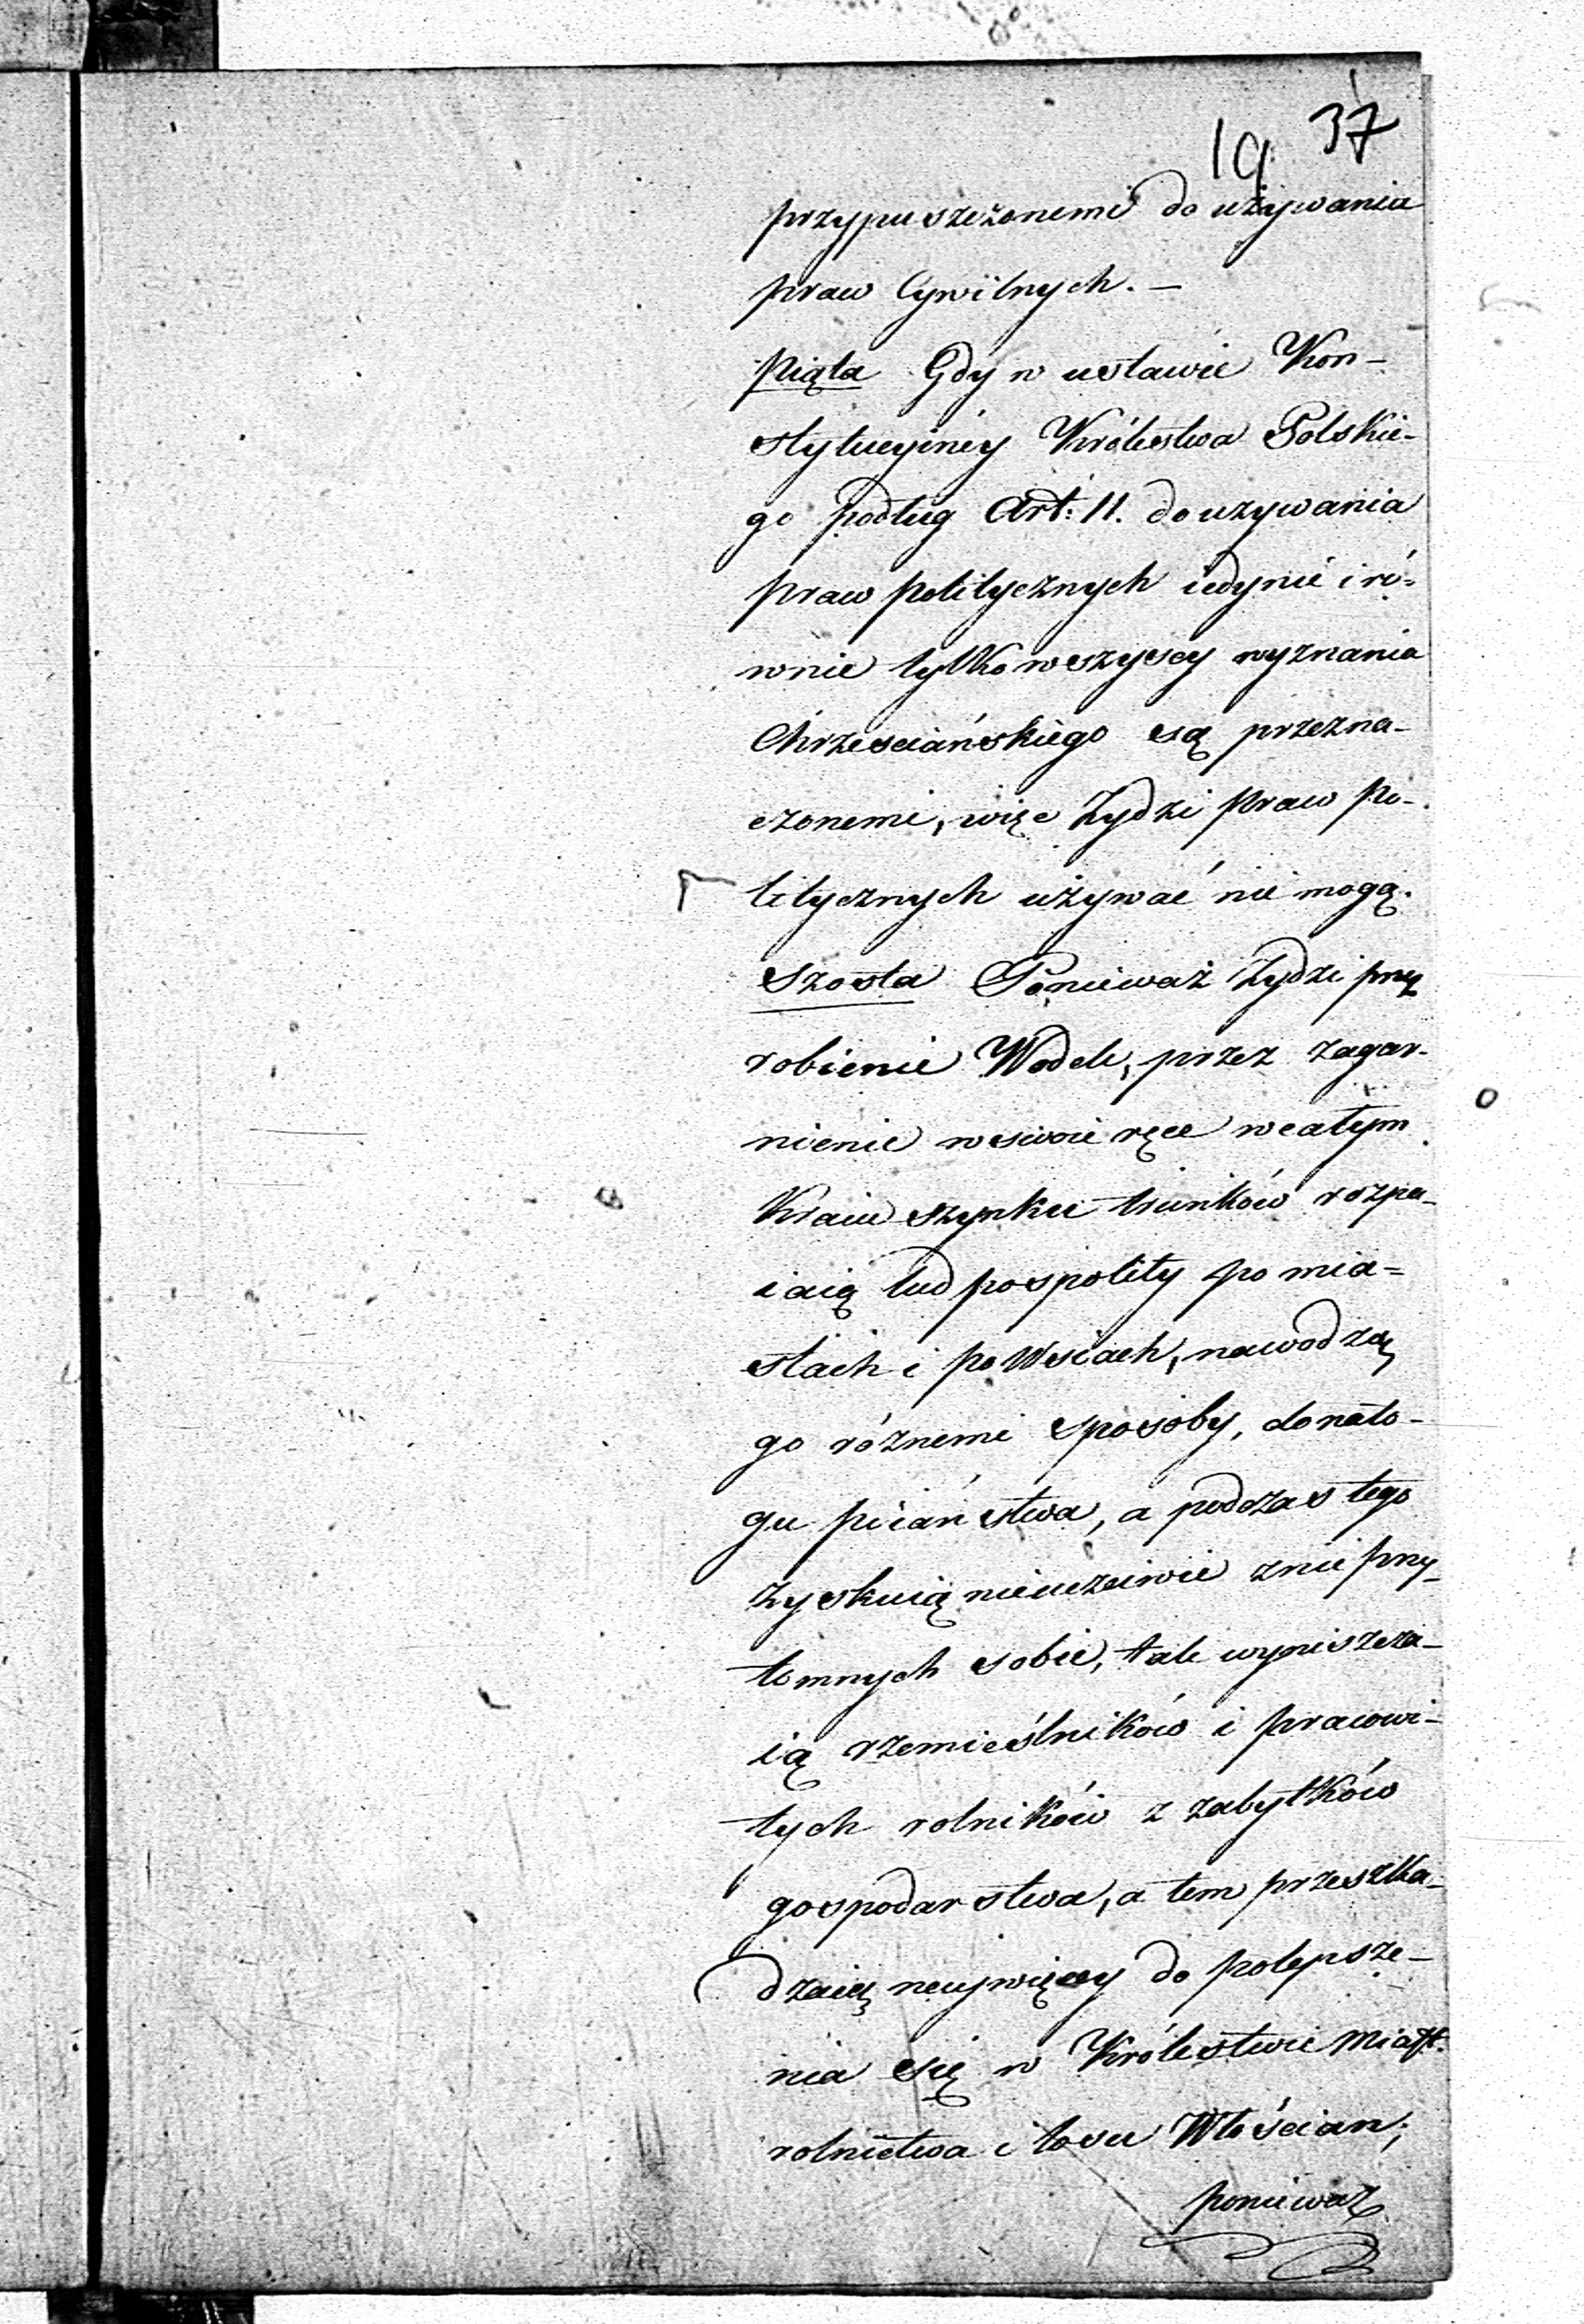 19 37
przypuszczonemi do używania
praw Cywilnych. —
Piąta Gdy w ustawie Kon-
stytucyiney Królestwa Polskie-
go podług Art: 11. do uzywania
praw politycznych iedynie i ró-
wnie tylko wszyscy wyznania
Chrześciańskiego są przezna-
czonemi, więc Żydzi praw po-
litycznych używać nie mogą.
Szosta Ponieważ Żydzi przez
robienie Wódek, przez zagar-
nienie w swoie ręce w całym
Kraiu szynku trunków rozpa-
iaią lud pospolity po mia-
stach i po Wsiach, nawodzą
go róznemi sposoby, do nało-
gu piiaństwa, a podczas tego
zyskuią nieuczciwie z nieprzy-
tomnych sobie, tak wyniszcza-
ią rzemieślników i pracowi-
tych rolników z zabytków
gospodarstwa, a tem przeszka-
dzaią naywięcey do polepsze-
nia się w Królestwie Miast.
rolnictwa i losu Włościan;
ponieważ